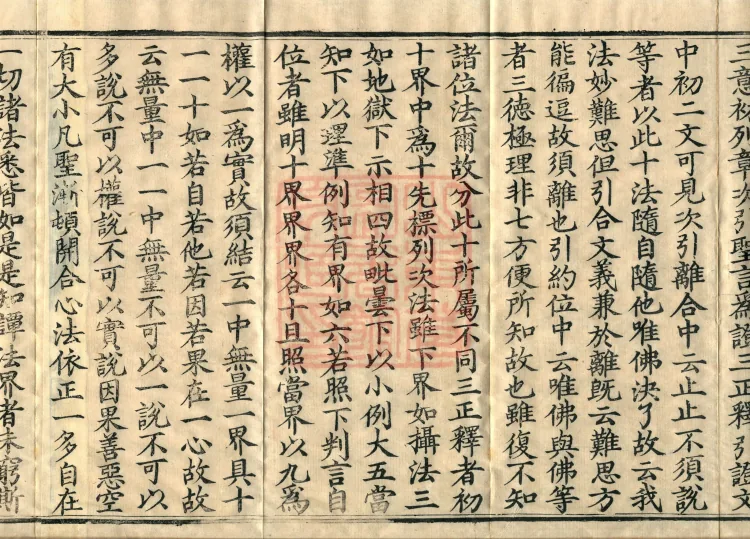 三意初列章次引聖言為證三正釋引證文
中初二文可見次引離合中云止止不須說
等者以此十法隨自隨他唯佛決了故云我
法妙難思但引合文義兼於離旣云難思方
能徧逗故須離也引約位中云唯佛與佛等
者三德極理非七方便所知故也雖復不知
諸位法爾故分此十所屬不同三正釋者初
十界中為十先標列次法雖下界如攝法三
如地獄下示相四故毗曇下以小例大五當
知下以理準例知有界如六若照下判言自
位者雖明十界界界各十且照當界以九為
權以一為實故須結云一中無量一界具十
一一十如若自若他若因若果在一心故故
云無量中一一中無量不可以一說不可以
多說不可以權說不可以實說因果善惡空
有大小凡聖漸頓開合心法依正一多自在
一切諸法悉皆如是是知譚法界者未窮斯